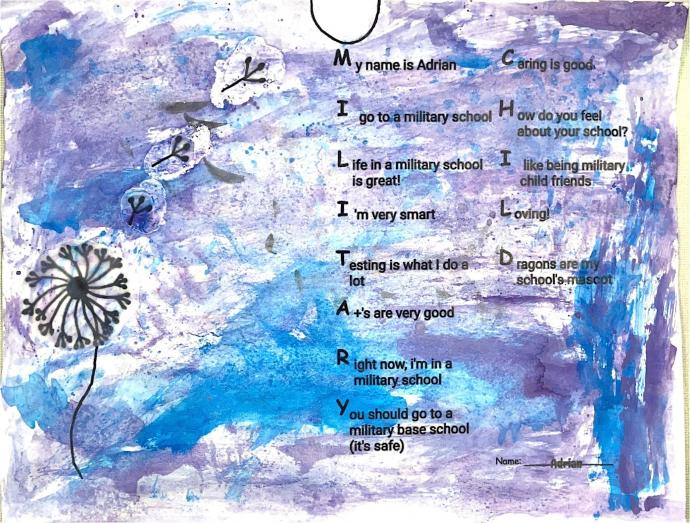 My name is Adrian
I go to a military school
Life in a military school
is great!
I'm very smart
Testing is what I do a
lot
A+'s are very good
Right now, i'm in a
military school
You should go to a
military base school
(it's safe)
Caring is good.
How do you feel
about your school?
I like being military
child friends
Loving!
Dragons are my
school's mascot
Name: Adrian